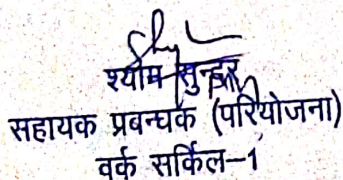 श्याम सुन्दर
सहायक प्रबन्धक (परियोजना)
वर्क सर्किल-1